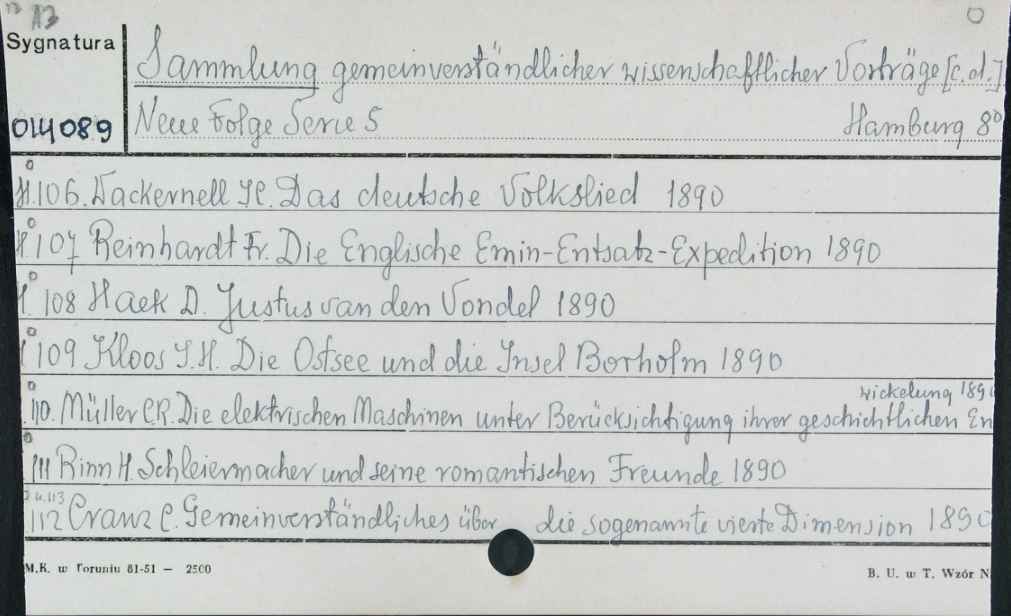 13 A3
Sygnatura
Sammlung gemeinverständlicher wissenschaftlicher Vorträge [c.d.]
014089
Neue Folge Serie 5 Hamburg 8°
H.106. Wackernell JE. Das deutsche Volkslied 1890
H 107 Reinhardt Fr. Die Englische Emin-Entsatz-Expedition 1890
H. 108 Haek D. Justus van den Vondel 1890
109 Kloos J.H. Die Ostsee und die Insel Borholm 1890
wickelung 1890
110. Müller C.R. Die elektrischen Maschinen unter Berücksichtigung ihrer geschichtlichen En
111 Rinn H. Schleiermacher und seine romantischen Freunde 1890
113
112 Cranz C. Gemeinverständliches über die sogenannte vierte Dimension 1890
M.K. w Toruniu 81-51 — 2500 B. U. w T. Wzór N